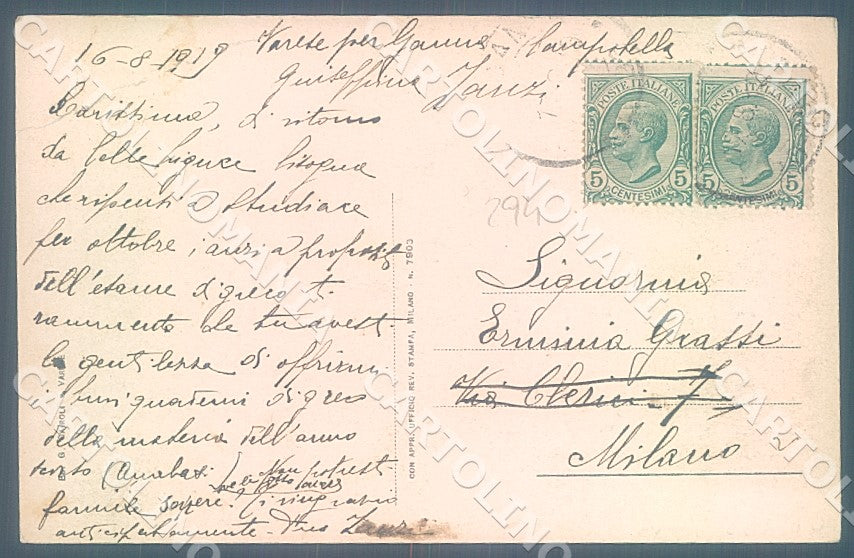 16-8-1919
Varese per Ganna Campotella
Giuseppina Zanzi
Carissima, di ritorno
da bisogna
che ripensi a studiare
per ottobre, anzi a proposito
dell'esame di greco ti
rammento che tu avesti
la gentilezza di offrirmi
i tuoi quaderni di greco
della materia dell'anno
(Anabasi) Non potresti
farmele avere. Ti ringrazio
anticipatamente.
POSTE ITALIANE
5 CENTESIMI 5
POSTE ITALIANE
5 CENTESIMI 5
294
Signorina
Erminia Grassi
Via Clerici 7
Milano
CON APPR. UFFICIO REV. STAMPA, MILANO - N. 7903
CARTOLINOMANIA